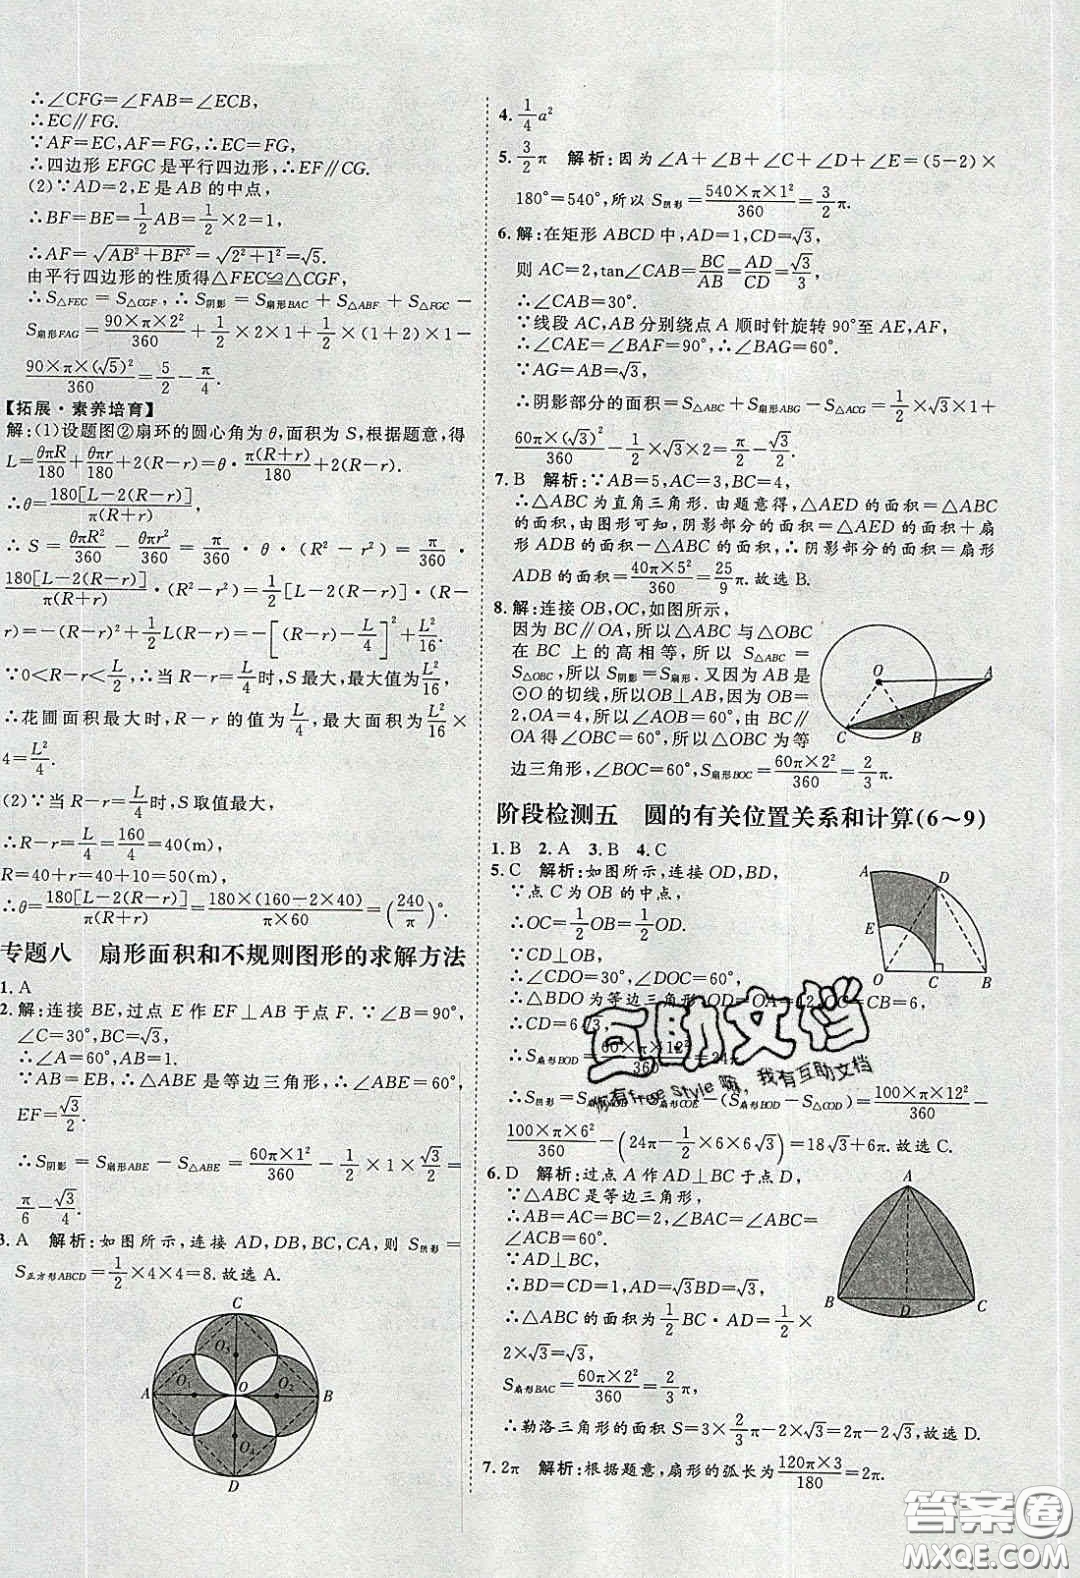 ∴∠CFG=∠FAB=∠ECB,
∴EC∥FG.
∵AF=EC,AF=FG,∴EC=FG,
∴四边形 EFGC 是平行四边形,∴EF∥CG.
(2)∵AD=2,E 是 AB 的中点,
∴BF=BE=1/2AB=1/2×2=1,
∴AF=√(AB²+BF²)=√(2²+1²)=√5.
由平行四边形的性质得△FEC≌△CGF,
∴S△FEC=S△CGF,∴S阴影=S扇形BAC+S△ABF+S△FGC-
S扇形FAG=(90×π×2²)/360+1/2×2×1+1/2×(1+2)×1-
(90×π×(√5)²)/360=5/2-π/4.
【拓展·素养培育】
解:(1)设题图②扇环的圆心角为θ,面积为 S,根据题意,得
L=θπR/180+θπr/180+2(R-r)=θ·π(R+r)/180+2(R-r).
∴θ=180[L-2(R-r)]/π(R+r),
∴S=θπR²/360-θπr²/360=π/360·θ·(R²-r²)=π/360·
180[L-2(R-r)]/π(R+r)·(R²-r²)=1/2[L-2(R-r)]·(R-
r)=-(R-r)²+1/2L(R-r)=-[(R-r)-L/4]²+L²/16.
∵0<R-r<L/2,∴当 R-r=L/4时,S 最大,最大值为L²/16,
∴花圃面积最大时,R-r 的值为L/4,最大面积为L²/16×
4=L²/4.
(2)∵当 R-r=L/4时,S 取值最大,
∴R-r=L/4=160/4=40(m),
R=40+r=40+10=50(m),
∴θ=180[L-2(R-r)]/π(R+r)=180×(160-2×40)/π×60=(240/π)°.
专题八 扇形面积和不规则图形的求解方法
1. A
2. 解:连接 BE,过点 E 作 EF⊥AB 于点 F.∵∠B=90°,
∠C=30°,BC=√3,
∴∠A=60°,AB=1.
∵AB=EB,∴△ABE 是等边三角形,∴∠ABE=60°,
EF=√3/2.
∴S阴影=S扇形ABE-S△ABE=60π×1²/360-1/2×1×√3/2=
π/6-√3/4.
3. A 解析:如图所示,连接 AD,DB,BC,CA,则 S阴影=
S正方形ABCD=1/2×4×4=8.故选 A.
C
O₃
A O₁ O O₂ B
O₄
D
4. 1/4a²
5. 3/2π 解析:因为∠A+∠B+∠C+∠D+∠E=(5-2)×
180°=540°,所以 S阴影=540×π×1²/360=3/2π.
6. 解:在矩形 ABCD 中,AD=1,CD=√3,
则 AC=2,tan∠CAB=BC/AB=AD/CD=√3/3,
∴∠CAB=30°.
∵线段 AC,AB 分别绕点 A 顺时针旋转 90°至 AE,AF,
∴∠CAE=∠BAF=90°,∴∠BAG=60°.
∵AG=AB=√3,
∴阴影部分的面积=S△ABC+S扇形ABG-S△ACG=1/2×√3×1+
60π×(√3)²/360-1/2×√3×1=π/2.
7. B 解析:∵AB=5,AC=3,BC=4,
∴△ABC 为直角三角形.由题意得,△AED 的面积=△ABC
的面积,由图形可知,阴影部分的面积=△AED 的面积+扇
形 ADB 的面积-△ABC 的面积,∴阴影部分的面积=扇形
ADB 的面积=40π×5²/360=25/9π.故选 B.
8. 解:连接 OB,OC,如图所示,
因为 BC∥OA,所以△ABC 与△OBC
在 BC 上的高相等,所以 S△ABC=
S△OBC,所以 S阴影=S扇形.又因为 AB 是
⊙O 的切线,所以 OB⊥AB,因为 OB=
2,OA=4,所以∠AOB=60°,由 BC∥
OA 得∠OBC=60°,所以△OBC 为等
边三角形,∠BOC=60°,S扇形BOC=60π×2²/360=2/3π.
O A
C B
阶段检测五 圆的有关位置关系和计算(6~9)
1. B 2. A 3. B 4. C
5. C 解析:如图所示,连接 OD,BD,
∵点 C 为 OB 的中点,
∴OC=1/2OB=1/2OD,
∵CD⊥OB,
∴∠CDO=30°,∠DOC=60°,
∴△BDO 为等边三角形,OD=OA=12,OC=CB=6,
∴CD=6√3,
∴S扇形BOD=60×π×12²/360=24π,
∴S阴影=S扇形AOB-S扇形COE-(S扇形BOD-S△COD)=100×π×12²/360-
100×π×6²/360-(24π-1/2×6×6√3)=18√3+6π.故选 C.
A D
E
O C B
6. D 解析:过点 A 作 AD⊥BC 于点 D,
∵△ABC 是等边三角形,
∴AB=AC=BC=2,∠BAC=∠ABC=
∠ACB=60°.
∵AD⊥BC,
∴BD=CD=1,AD=√3BD=√3,
∴△ABC 的面积为1/2BC·AD=1/2×
2×√3=√3,
S扇形BAC=60π×2²/360=2/3π,
∴勒洛三角形的面积 S=3×2/3π-2×√3=2π-2√3,故选 D.
A
B D C
7. 2π 解析:根据题意,扇形的弧长为120π×3/180=2π.
互助文档
你有free style嘛,我有互助文档
答案圈
MXQE.COM